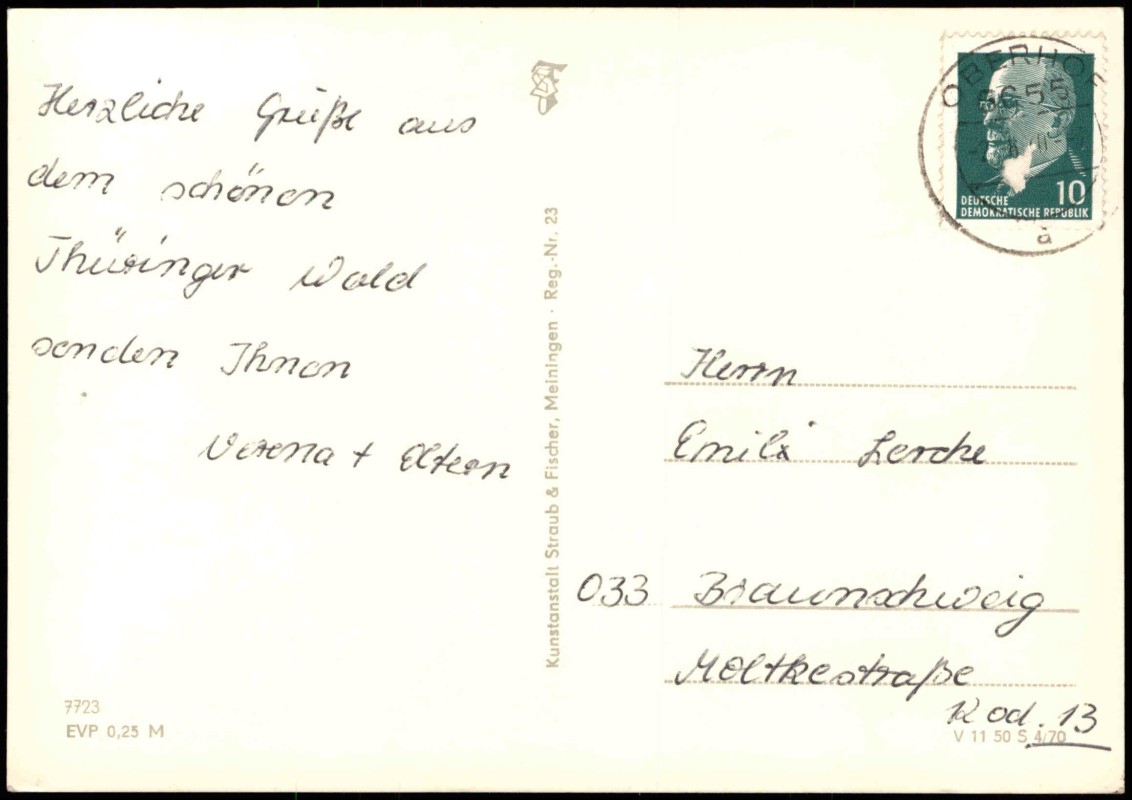 Herzliche Grüße aus
dem schönen
Thüringer Wald
senden Ihnen
Verena + Eltern
7723
EVP 0,25 M
Kunstanstalt Straub & Fischer, Meiningen · Reg.-Nr. 23
OBERHOF
6055
a
10
DEUTSCHE
DEMOKRATISCHE REPUBLIK
Herrn
Emil Lerche
033 Braunschweig
Moltkestraße
13
V 11 50 S 4/70